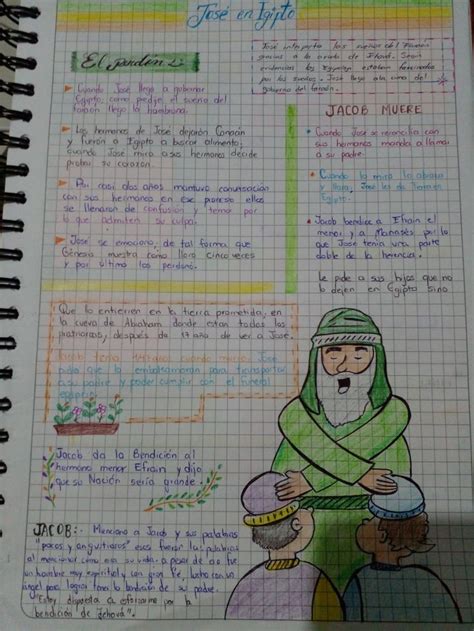 José en Egipto
El perdón
José interpreta los sueños del Faraón
gracias a la ayuda de Jehová. Según
los Egipcios estaban
por los sueños. José llegó a la cima del
gobierno del faraón.
Cuando José llegó a gobernar
Egipto, como predijo el sueño del
faraón llegó la hambruna.
Los hermanos de José dejarón Canaán
y fuerón a Egipto a buscar alimento;
cuando José miro a sus hermanos decide
probar su corazon.
Por casi dos años mantuvo comunicación
con sus hermanos en ese proceso ellos
se llenaron de confusión y temor por
lo que admiten su culpa.
José se emociono, de tal forma que
Génesis muestra como lloro cinco veces
y por último los perdonó.
JACOB MUERE
Cuando José se reconcilia con
sus hermanos manda a llamar
a su padre.
Cuando lo mira lo abraza
y llora, José los da tierra en
Egipto.
Jacob bendice a Efrain el
menor y a Manasés por lo
que José tenia una parte
doble de la herencia.
Le pide a sus hijos que no
lo dejen en Egipto sino
Que lo entierren en la tierra prometida, en
la cueva de Abraham donde estan todos los
patriarcas, después de 17 años de ver a José.
Jacob tenia 147 años cuando murio. José
pidio que lo embalsamaran para transportar
a su padre y poder cumplir con el funeral
Jacob da la Bendición al
hermano menor Efrain y dijo
que su Nación sería grande.
JACOB:- Menciono a Jacob y sus palabras
"pocos y angustiaros" esas fueron las palabras
al mencionar como era su vida, a pesar de ello fue
un hombre muy espiritual y con gran Fé, lucho con un
angel para lograr tener la bendición de su padre.
"Estoy dispuesta a esforzarme por la
bendición de Jehová".